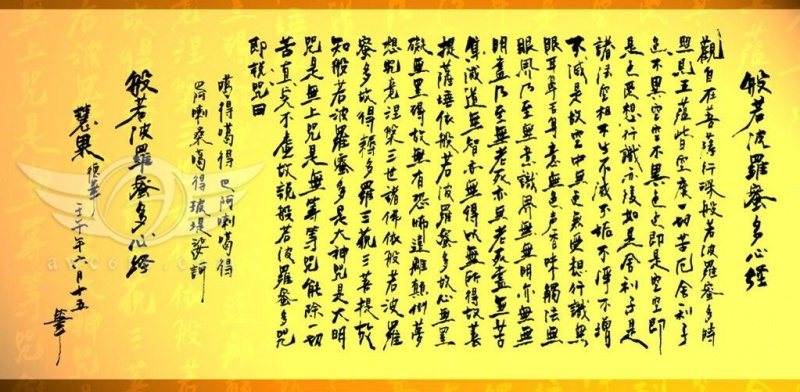 般若波羅蜜多心经
觀自在菩薩行深般若波羅蜜多時
照見五蕴皆空度一切苦厄舍利子
色不異空空不異色色即是空空即
是色受想行識亦復如是舍利子是
諸法空相不生不滅不垢不淨不增
不減是故空中無色無受想行識無
眼耳鼻舌身意無色声香味觸法無
眼界乃至無意識界無無明亦無無
明盡乃至無老死亦無老死盡無苦
集滅道無智亦無得以無所得故菩
提薩埵依般若波羅蜜多故心無罣
礙無罣碍故無有恐怖遠離顛倒夢
想究竟涅槃三世諸佛依般若波羅
蜜多故得耨多羅三藐三菩提故
知般若波羅蜜多是大神咒是大明
咒是無上咒是無等等咒能除一切
苦真实不虚故說般若波羅蜜多咒
即說咒曰
噶得噶得 巴阿喇噶得
巴阿喇桑噶得 玻堤娑訶
般若波羅蜜多心经
慧果
壬午年六月十五